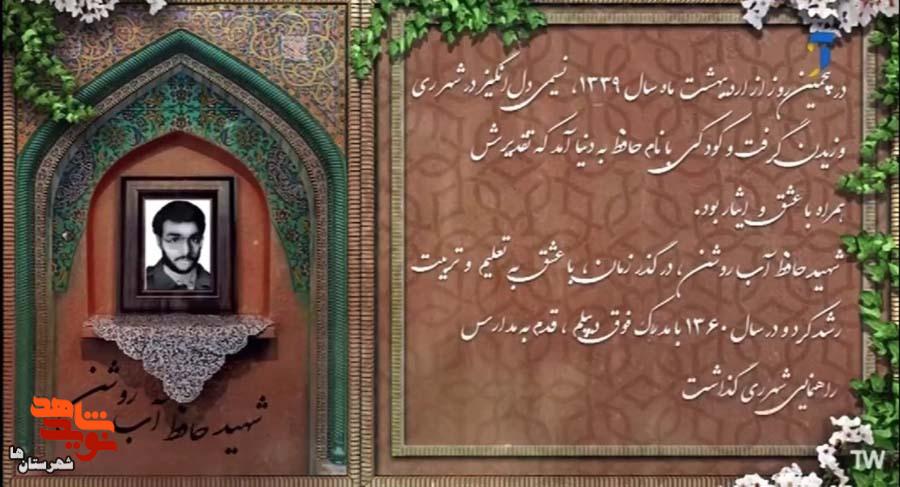 در پنجمین روز از اردیبهشت ماه سال ۱۳۳۹، نسیمی دل انگیز در شهر ری
وزیدن گرفت و کودکی با نام حافظ به دنیا آمد که تقدیرش
همراه با عشق و ایثار بود.
شهید حافظ آب روشن، در گذر زمان، با عشق به تعلیم و تربیت
رشد کرد و در سال ۱۳۶۰ با مدرک فوق دیپلم، قدم به مدارس
راهنمایی شهر ری گذاشت
شهید حافظ آب روشن
نوید شاهد
شهرستان‌ها
TW